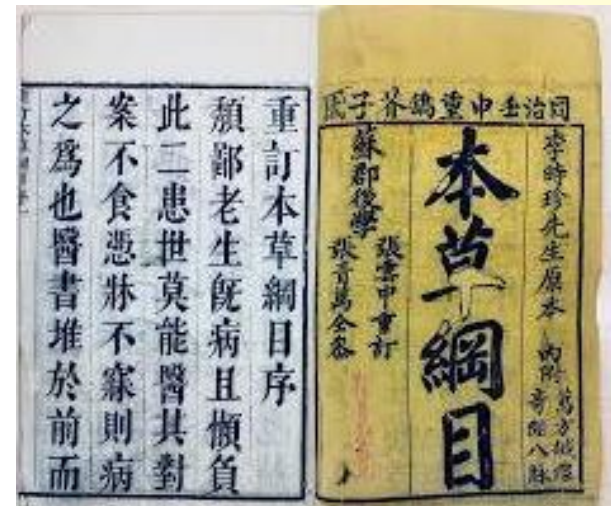 同治壬申重鐫芥子
李時珍先生原本
內附
萬方鍼線
奇經八脉
本草綱目
張雲中重訂
蘇郡後學
張青萬仝參
重訂本草綱目序
頹鄙老生旣病且懶負
此二患世莫能醫其對
案不食憑牀不寐則病
之爲也醫書堆於前而